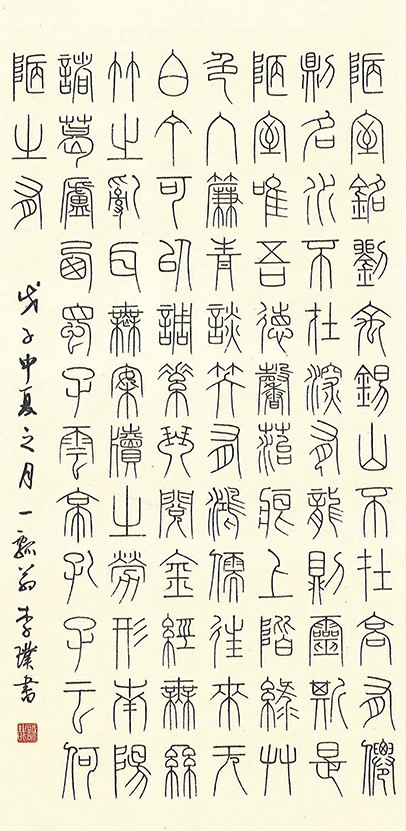 陋室銘劉禹錫山不在高有僊
則名水不在深有龍則靈斯是
陋室唯吾德馨苔痕上階綠艸
色入簾青談笑有鴻儒往來无
白丁可以調素琴閱金經無絲
竹之亂耳無案牘之勞形南陽
諸葛廬西蜀子雲亭孔子云何
陋之有
戊子中夏之月一瓢翁李璞書